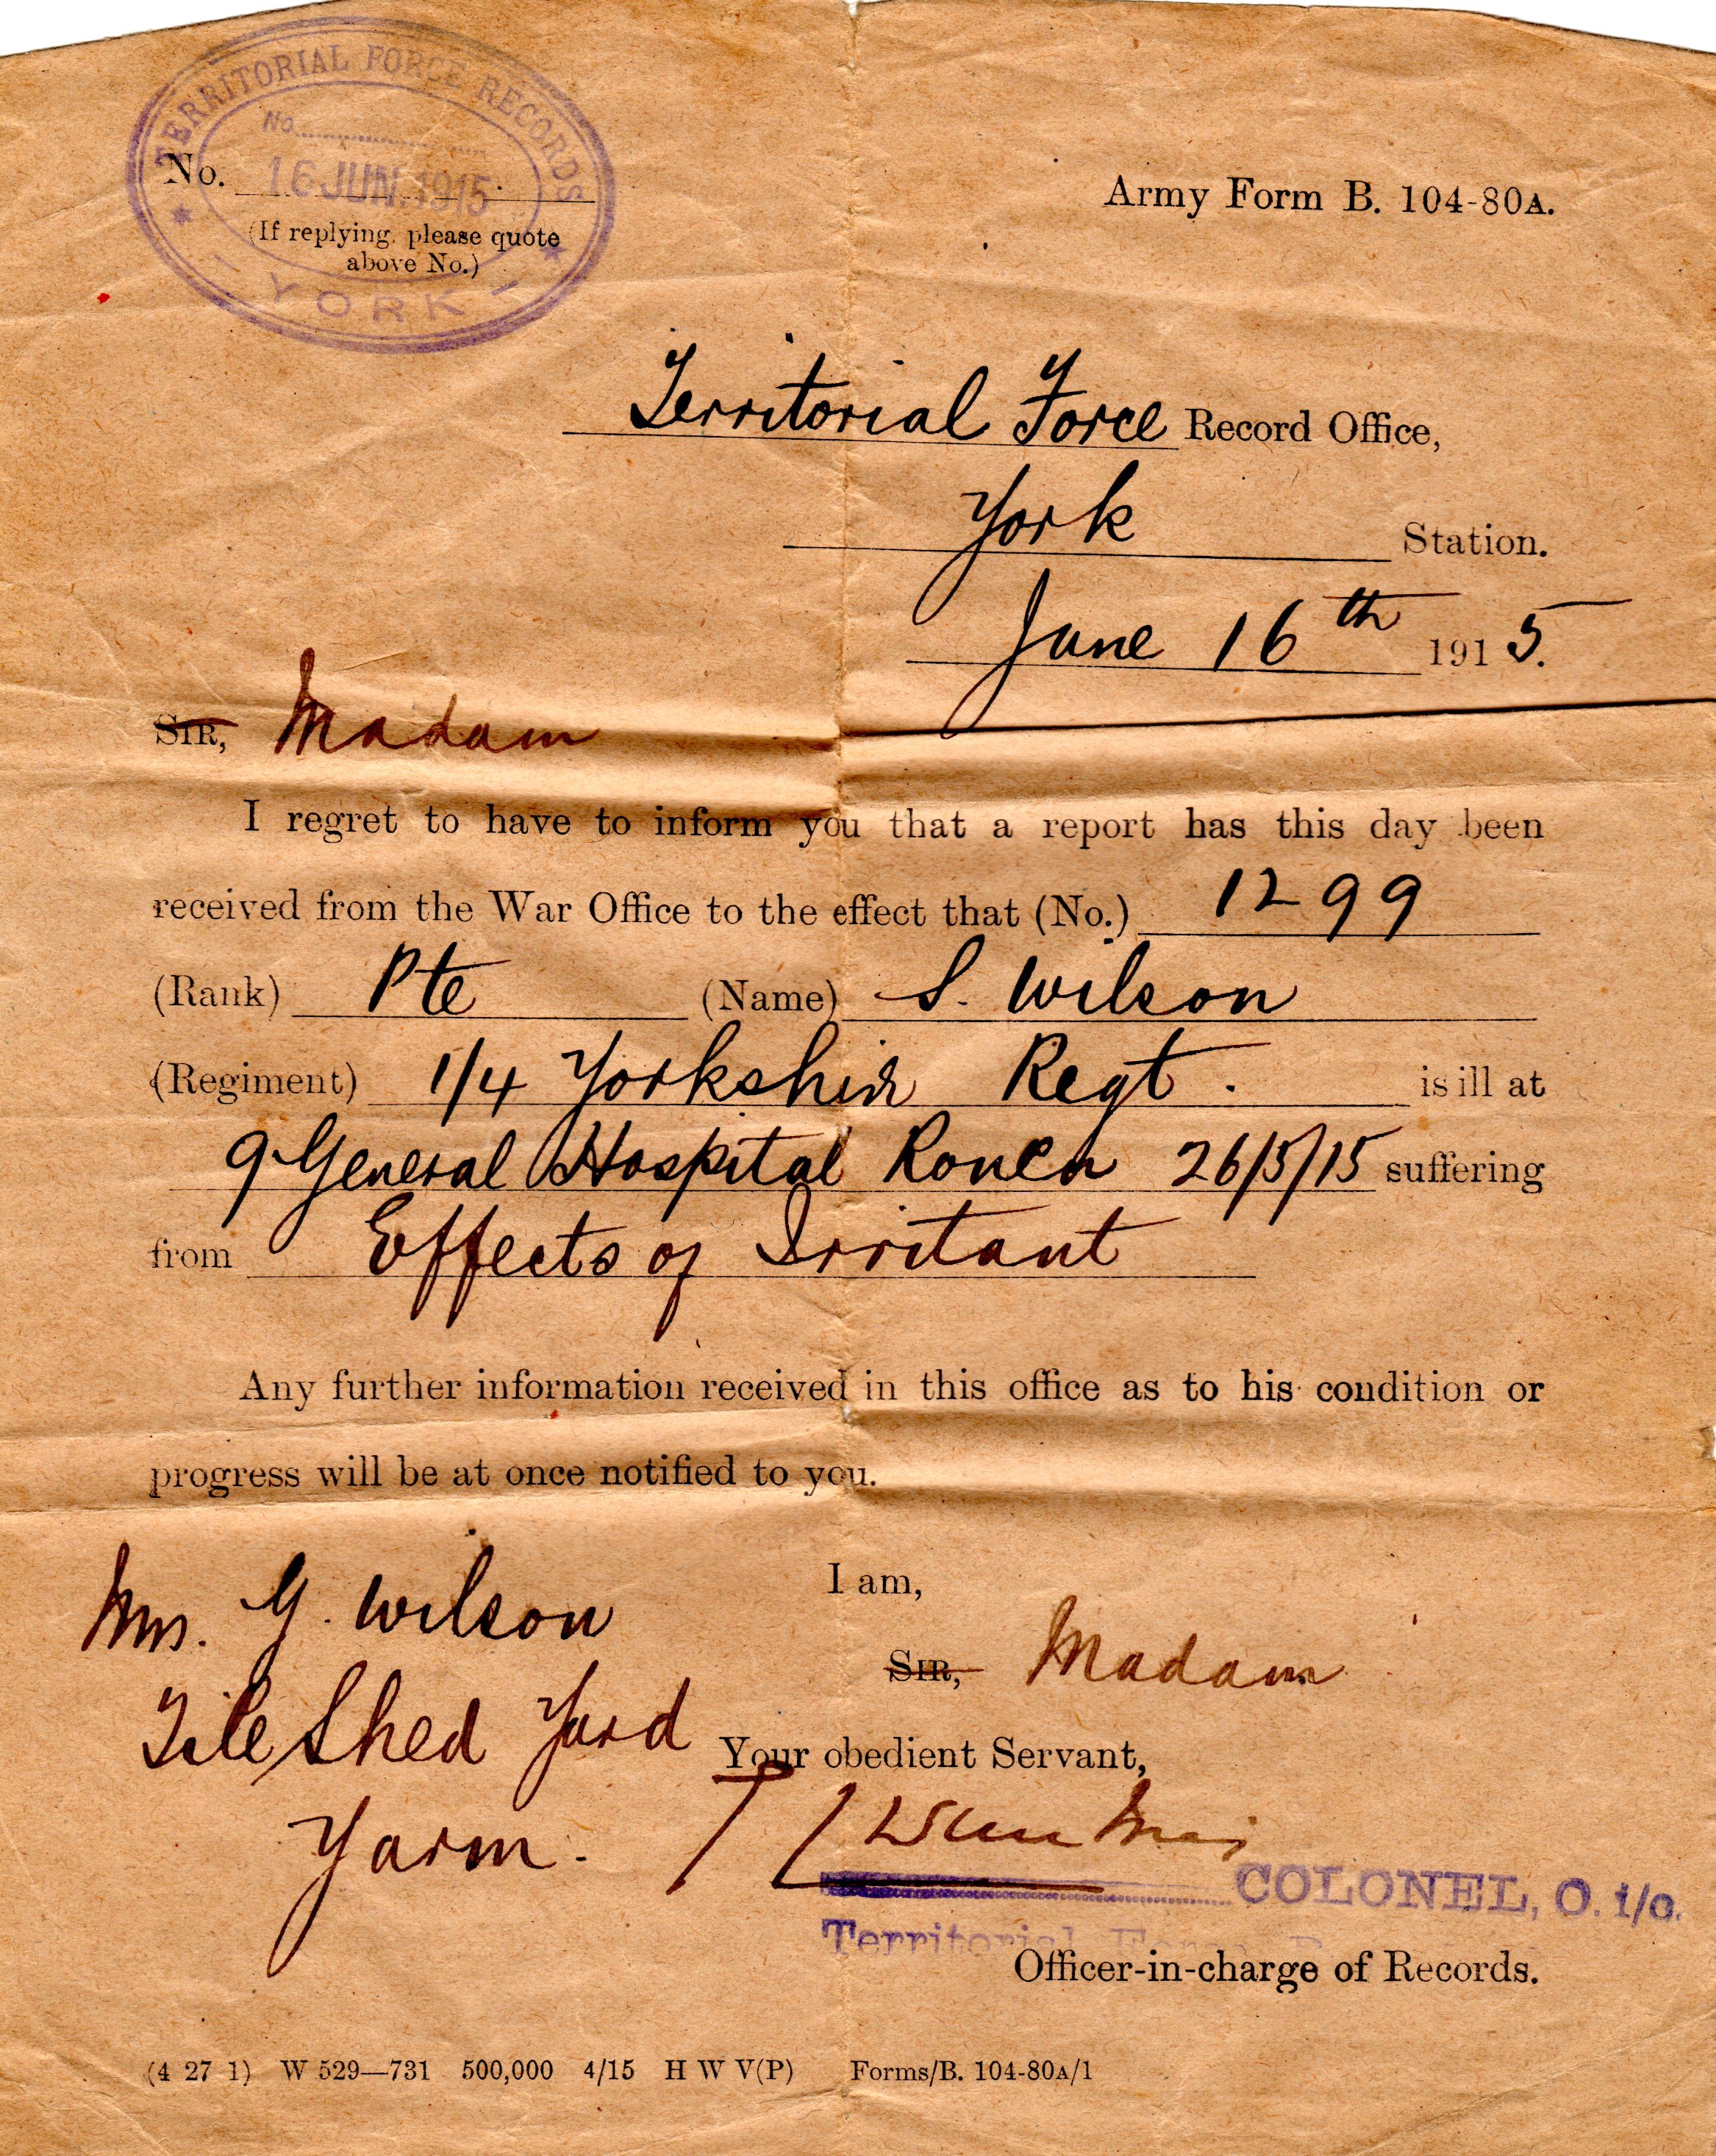 TERRITORIAL FORCE RECORDS
No.
No. 16 JUN. 1915
(If replying, please quote
above No.)
YORK
Army Form B. 104-80A.
Territorial Force Record Office,
York Station.
June 16th 1915.
SIR, Madam
I regret to have to inform you that a report has this day been
received from the War Office to the effect that (No.) 1299
(Rank) Pte (Name) S. Wilson
(Regiment) 1/4 Yorkshire Regt. is ill at
9 General Hospital Rouen 26/5/15 suffering
from Effects of Irritant
Any further information received in this office as to his condition or
progress will be at once notified to you.
I am,
Mrs. G. Wilson
SIR, Madam
Tile Shed Yard
Your obedient Servant,
Yarm.
COLONEL, O. i/c.
Territorial Force
Officer-in-charge of Records.
(4 27 1) W 529—731 500,000 4/15 H W V(P) Forms/B. 104-80A/1